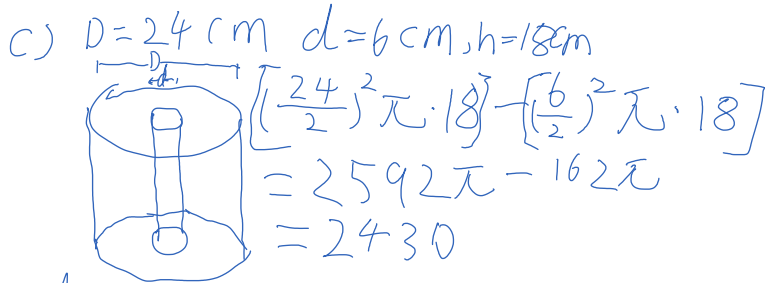 c) D=24cm d=6cm,h=18cm
D
d
[(24/2)²π·18]-[(6/2)²π·18]
=2592π-162π
=2430